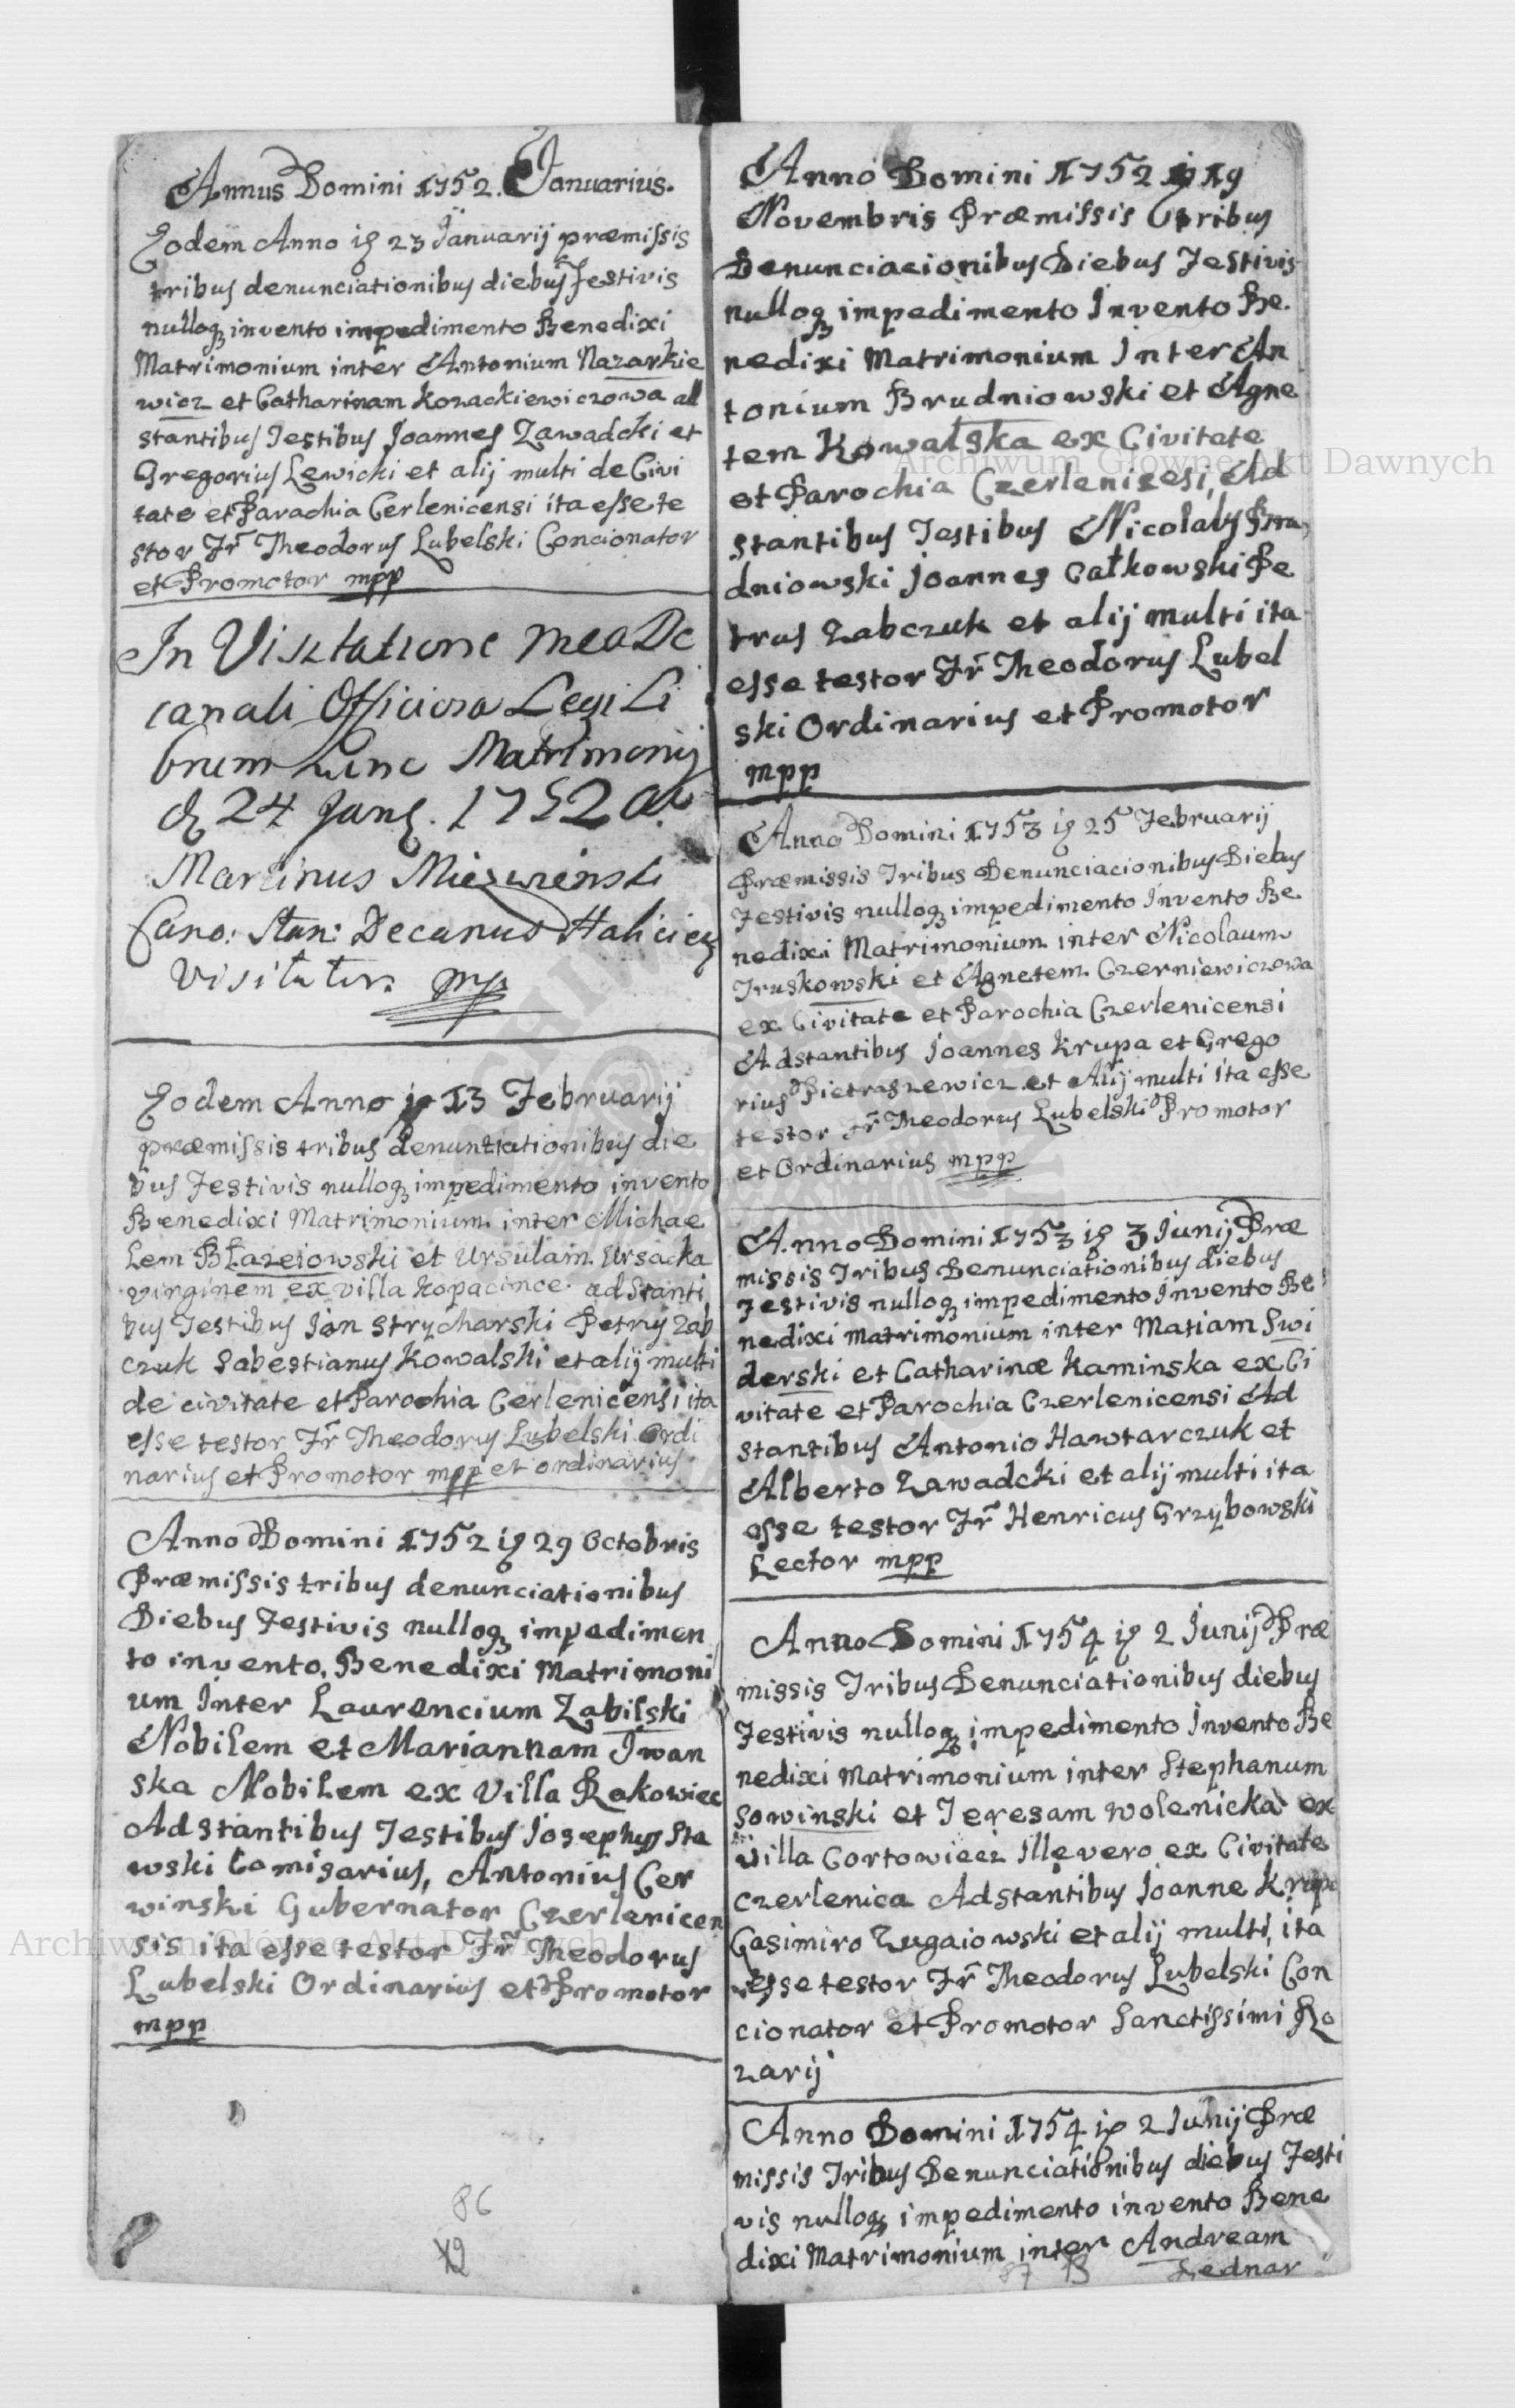 Annus Domini 1752. Januarius.
Eodem Anno ig 23 Januarij præmissis
tribus denunciationibus diebus Festivis
nulloq invento impedimento Benedixi
Matrimonium inter Antonium Nazarkie
wicz et Catharinam Kozackiewiczowa ad
stantibus Testibus Joannes Zawadcki et
Gregorius Lewicki et alij multi de Civi
tate et Parachia Cerlenicensi ita esse te
stor Fr Theodorus Lubelski Concionator
et Promotor mpp
In Visitatione mea De
canali Officiosa Legi Li
brum hunc Matrimonij
d 24 Jan. 1752 a
Martinus
Cano: Stan: Decanus Halicien
Visitator mp
Eodem Anno ip 13 Februarij
præmissis tribus denuntiationibus die
bus Festivis nulloq impedimento invento
Benedixi Matrimonium inter Michae
lem Błazeiowski et Ursulam Ursacka
virginem ex villa Kopacince adstanti
bus Testibus Jan Strycharski Petrus Zab
czuk Sabestianus Kowalski et alij multi
de civitate et Parochia Cerlenicensi ita
esse testor Fr Theodorus Lubelski Ordi
narius et Promotor mpp et ordinarius
Anno Domini 1752 ig 29 Octobris
Præmissis tribus denunciationibus
Diebus Festivis nulloq impedimen
to invento, Benedixi Matrimoni
um Inter Laurencium Zabilski
Nobilem et Mariannam Iwan
ska Nobilem ex Villa Rakowiec
Adstantibus Testibus Josephus Sta
wski Comisarius, Antonius Cer
winski Gubernator Czerlenicen
sis ita esse testor Fr Theodorus
Lubelski Ordinarius et Promotor
mpp
86
12
Anno Domini 1752 ig 19
Novembris Præmissis Tribus
Denunciacionibus Diebus Festivis
nulloq impedimento Invento Be
nedixi Matrimonium Inter An
tonium Brudniowski et Agne
tem Kowalska ex Civitate
et Parochia Czerlenicesi, Ad
stantibus Testibus Nicolaus Bru
dniowski Joannes Całkowski Pe
trus Zabczuk et alij multi ita
esse testor Fr Theodorus Lubel
ski Ordinarius et Promotor
mpp
Anno Domini 1753 ig 25 Februarij
Præmissis Tribus Denunciacionibus Diebus
Festivis nulloq impedimento Invento Be
nedixi Matrimonium inter Nicolaum
Truskowski et Agnetem Czerniewiczowa
ex Civitate et Parochia Czerlenicensi
Adstantibus Joannes Krupa et Grego
rius Pietraszewicz et Alij multi ita esse
testor Fr Theodorus Lubelski Promotor
et Ordinarius mpp
Anno Domini 1753 ig 3 Junij Præ
missis Tribus Denunciationibus diebus
Festivis nulloq impedimento Invento Be
nedixi matrimonium inter Matiam Swi
derski et Catharinæ Kaminska ex Ci
vitate et Parochia Czerlenicensi Ad
stantibus Antonio Hawtarczuk et
Alberto Zawadcki et alij multi ita
esse testor Fr Henricus Grzybowski
Lector mpp
Anno Domini 1754 ig 2 Junij Præ
missis Tribus Denunciationibus diebus
Festivis nulloq impedimento Invento Be
nedixi Matrimonium inter Stephanum
Sowinski et Teresam Wolenicka ex
villa Cortowiecz Ille vero ex Civitate
Czerlenica Adstantibus Joanne Krupa
Casimiro Zugaiowski et alij multi, ita
esse testor Fr Theodorus Lubelski Con
cionator et Promotor Sanctissimi Ro
zarij
Anno Domini 1754 ip 2 Junij Præ
missis Tribus Denunciationibus diebus Festi
vis nulloq impedimento invento Bene
dixi Matrimonium inter Andream
87 13 Lednar
Archiwum Główne Akt Dawnych
Archiwum Główne Akt Dawnych